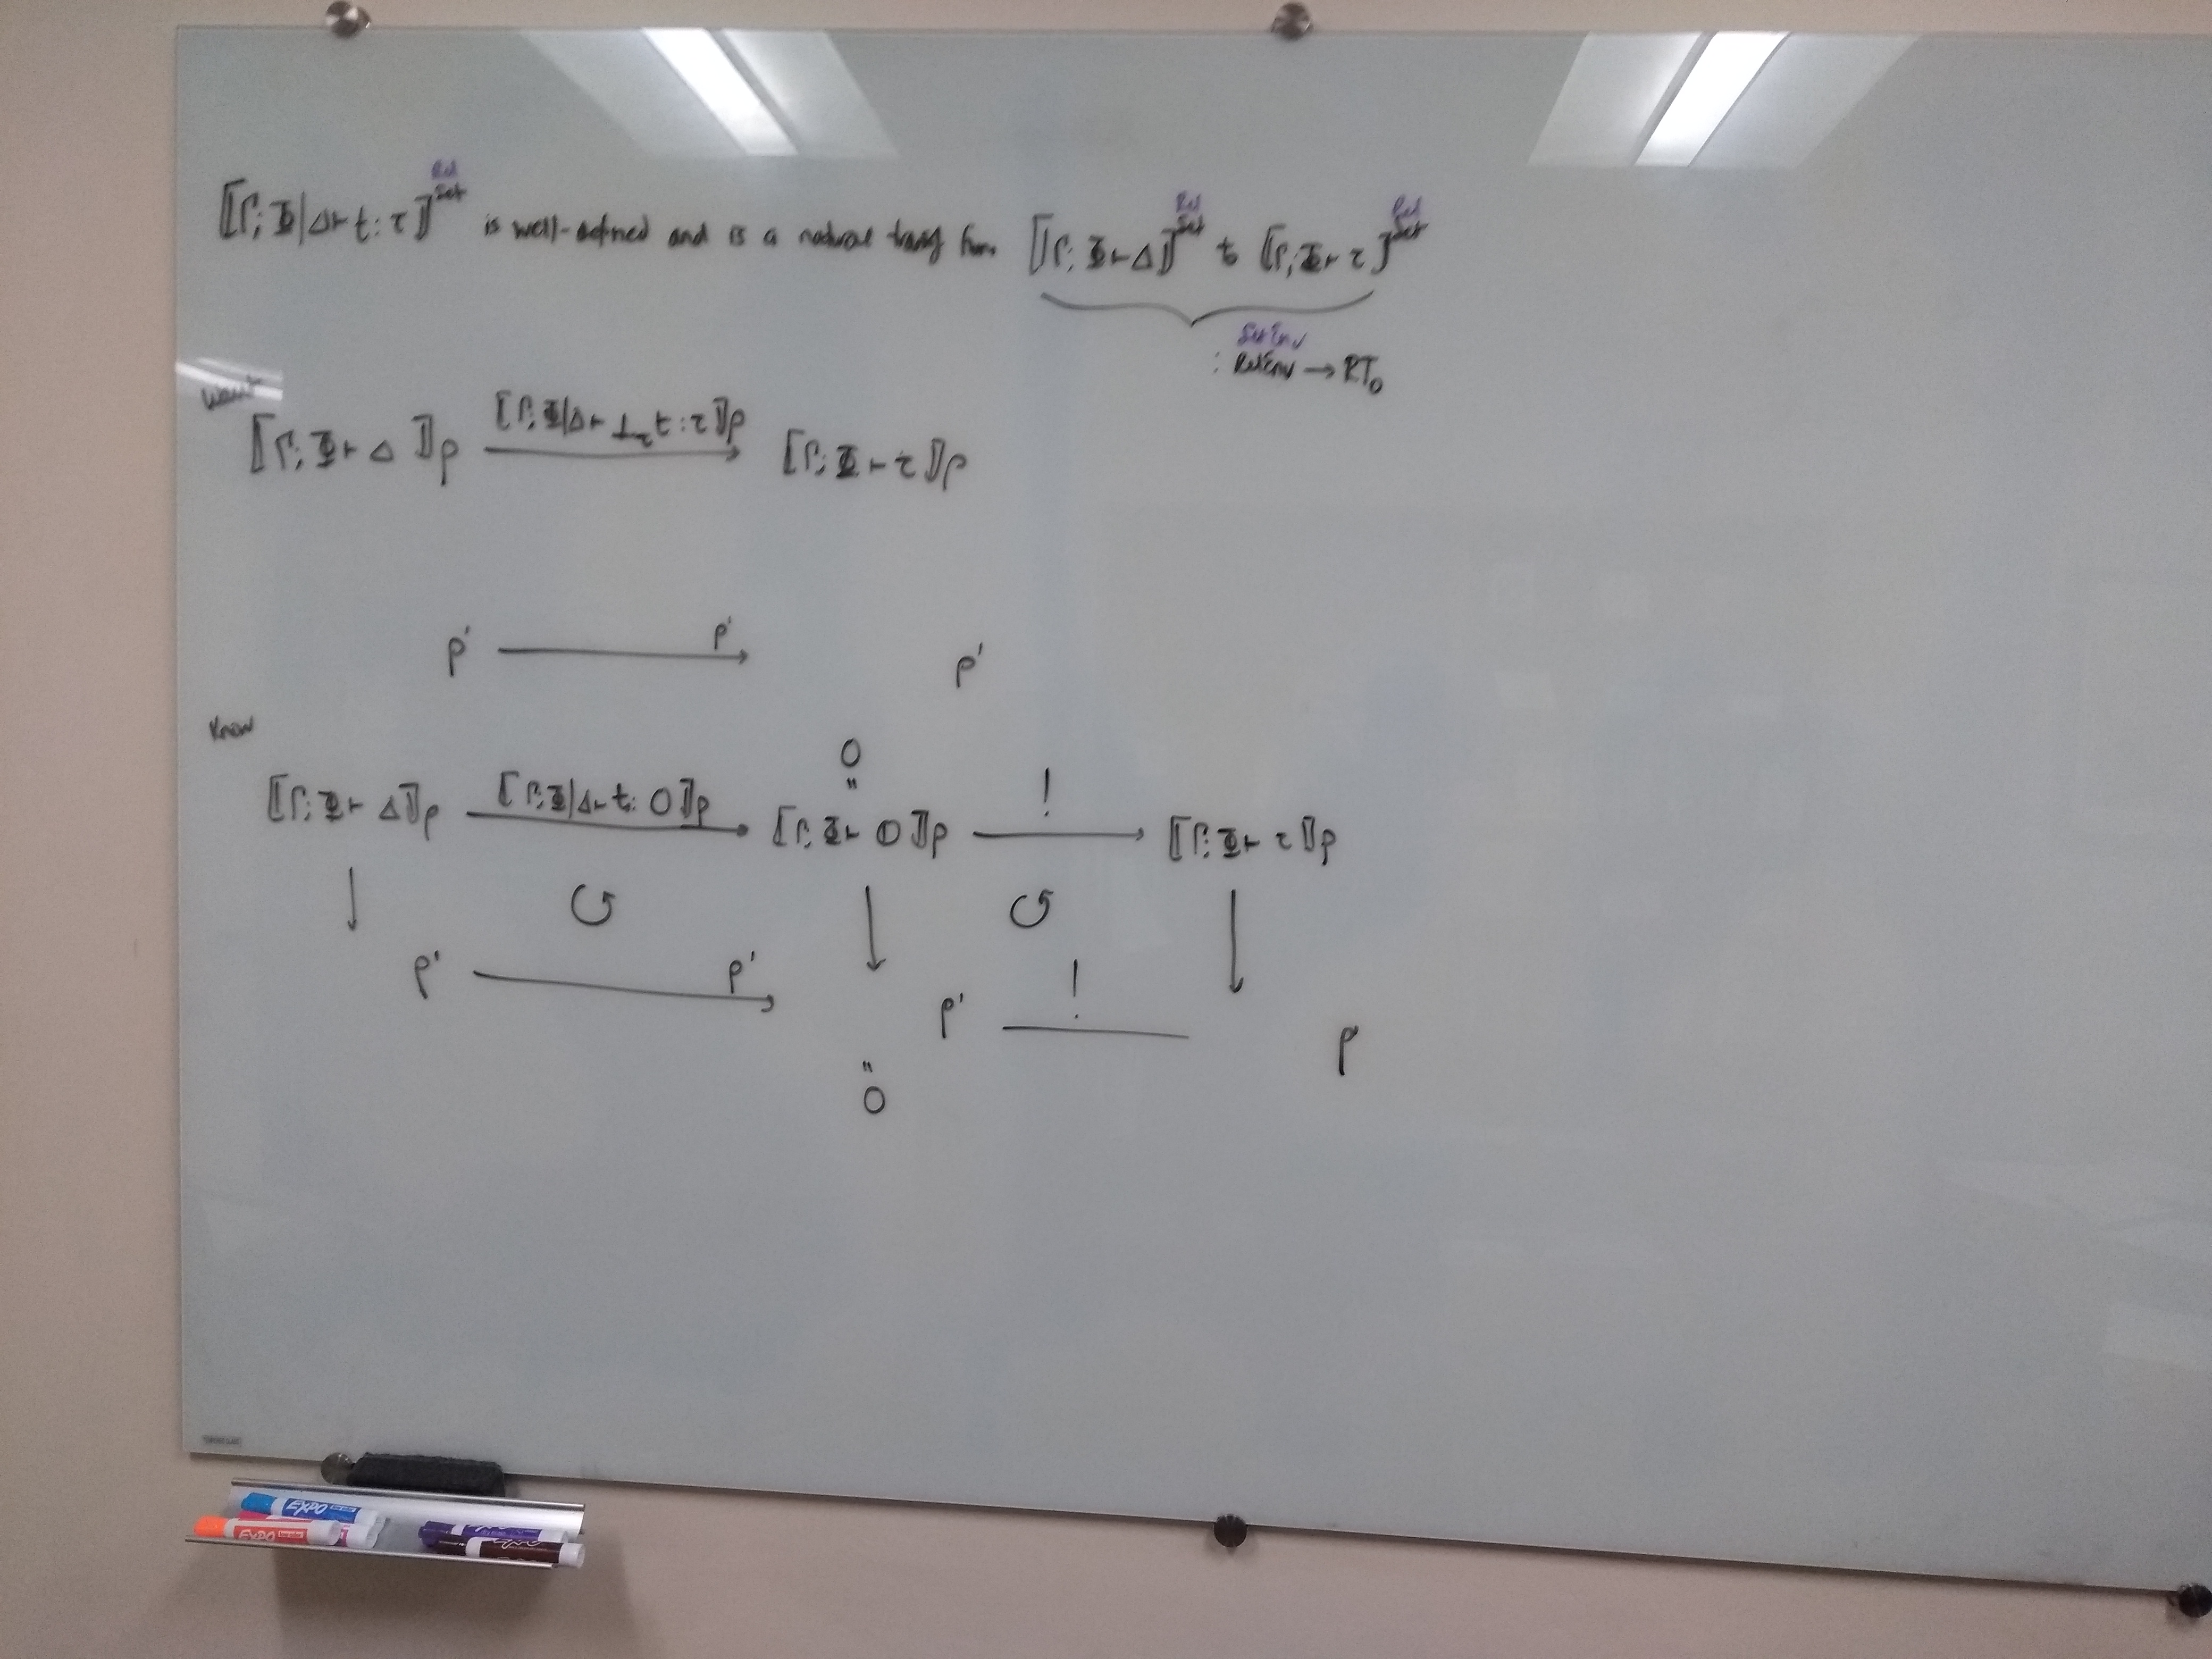 Rel Rel Rel
⟦Γ; Φ | Δ ⊢ t : τ⟧^Set is well-defined and is a natural transf from ⟦Γ; Φ ⊢ Δ⟧^Set to ⟦Γ; Φ ⊢ τ⟧^Set
SetEnv
: RelEnv → RT₀
Want
⟦Γ; Φ ⊢ Δ⟧ρ → ⟦Γ; Φ | Δ ⊢ ⊥_τ t : τ⟧ρ ⟦Γ; Φ ⊢ τ⟧ρ
ρ' → ρ' ρ'
Know
0
"
⟦Γ; Φ ⊢ Δ⟧ρ → ⟦Γ; Φ | Δ ⊢ t : 𝟘⟧ρ ⟦Γ; Φ ⊢ 𝟘⟧ρ → ! ⟦Γ; Φ ⊢ τ⟧ρ
↓ ↺ ↓ ↺ ↓
ρ' → ρ' ρ' — ! ρ'
"
0
EXPO
EXPO